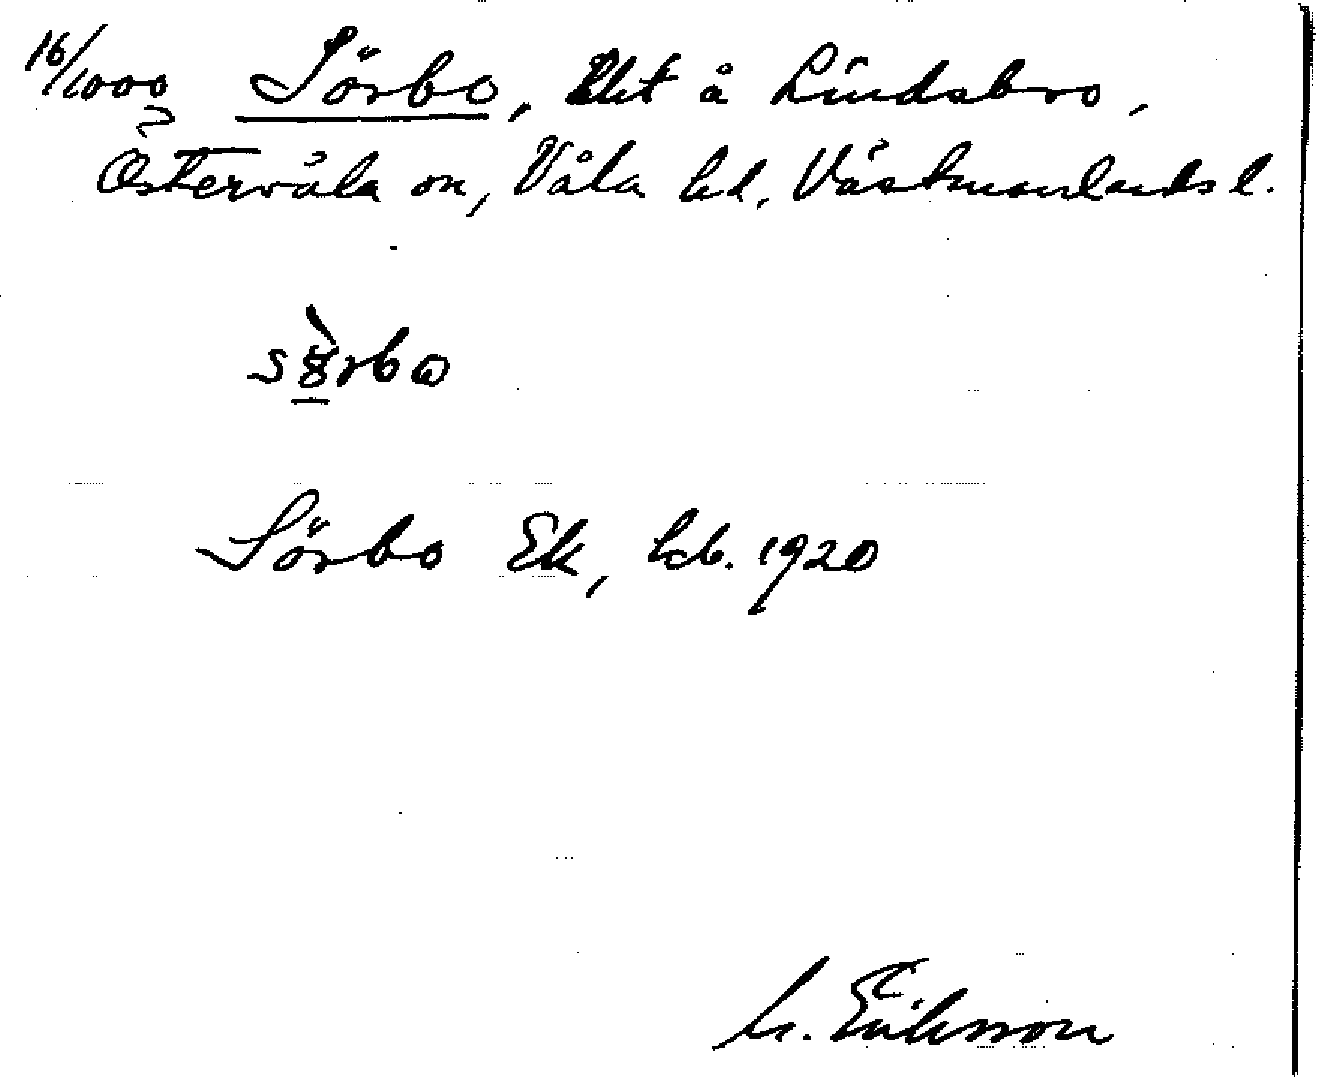 16/1000 Sörbo, Lht å Lindsbro,
Östervåla sn, Våla hd, Västmanlands l.
Sörbo Ek, hcb. 1920
M. Eriksson